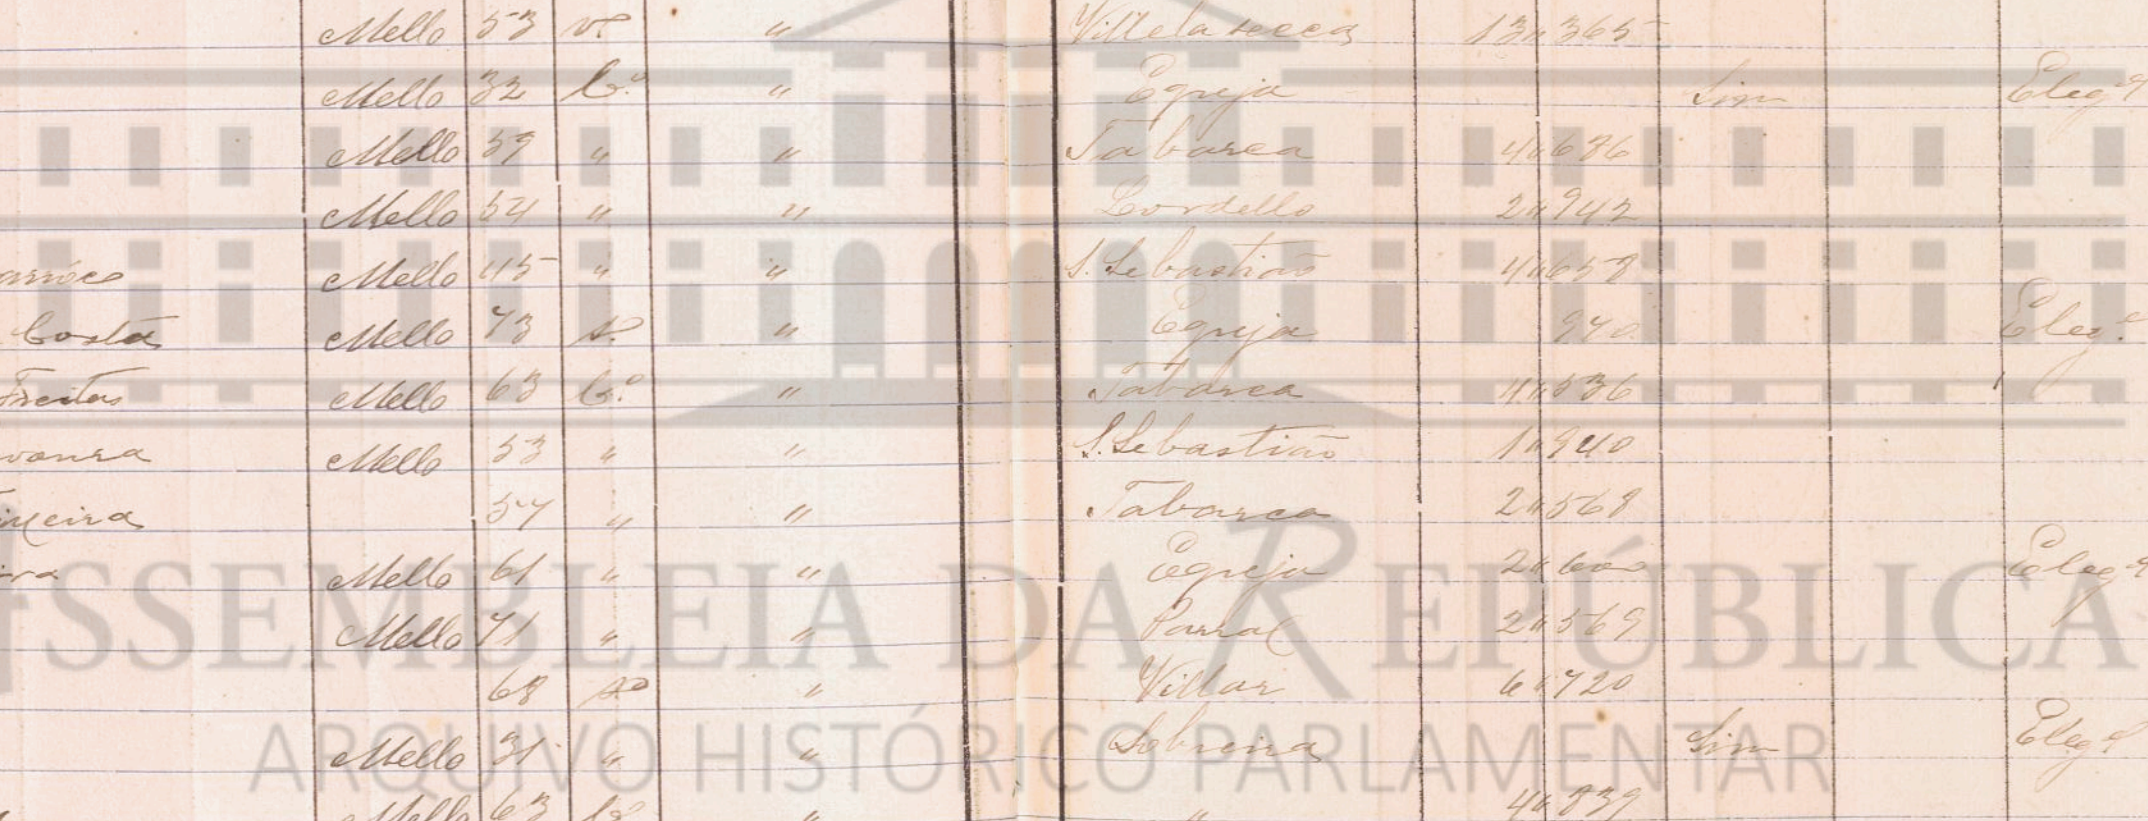 Mello 53 vº " Villela secca 13"365
Mello 32 C.º " Egreja Sim Eleg.el
Mello 39 " " Tabarca 4"686
Mello 54 " " Cordello 2"942
Mello 45 " " S. Sebastião 4"658
Costa Mello 73 s.º " Egreja 970 Eleg.el
Freitas Mello 63 C.º " Tabarca 4"536
Mello 53 " " S. Sebastião 1"940
57 " " Tabarca 2"568
Mello 61 " " Egreja 2"600 Eleg.el
Mello 71 " " Parral 2"569
68 sº " Villar 6"720
Mello 31 " " Sobreira Sim Eleg.el
Mello 63 Cº " " 4"839
ASSEMBLEIA DA REPÚBLICA
ARQUIVO HISTÓRICO PARLAMENTAR